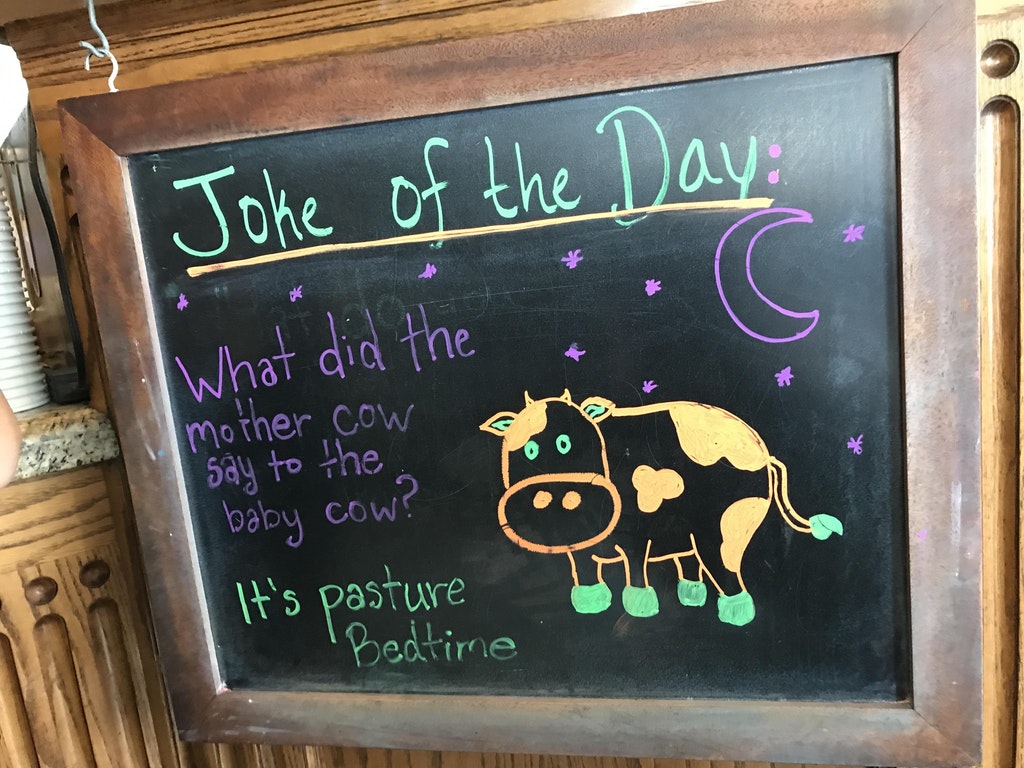 Joke of the Day:
What did the
mother cow
say to the
baby cow?
It's pasture
Bedtime